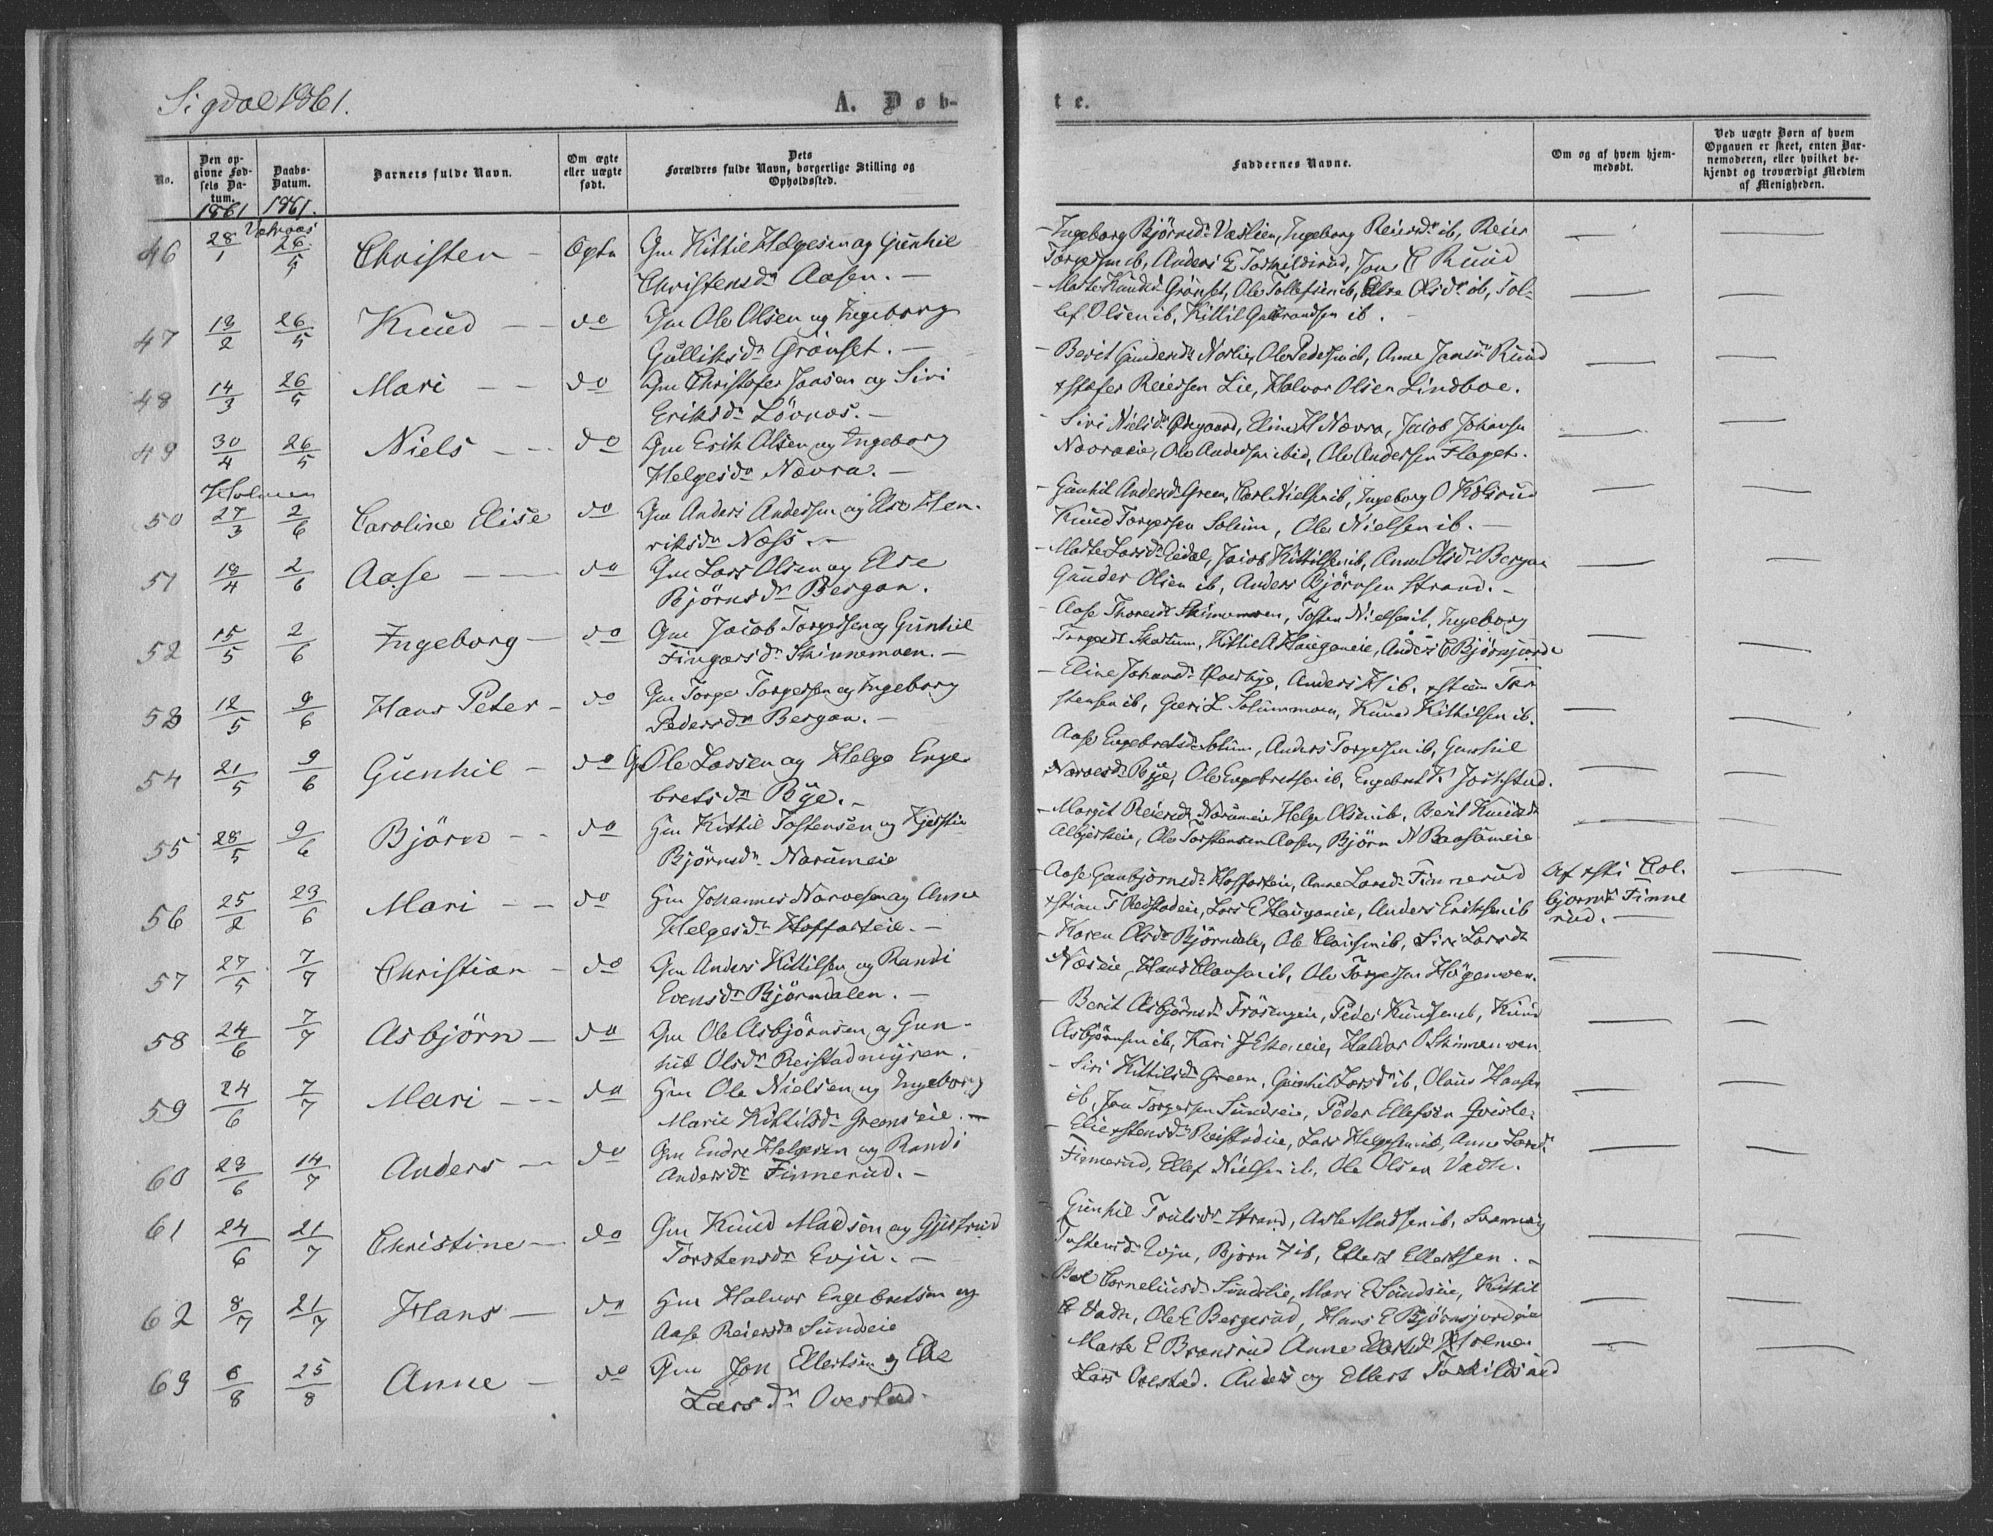 Sigdal 1861.
A. Døb-
te.
No.
Den op-
givne Fød-
sels Da-
tum.
1861
Daabs-
Datum.
1861.
Barnets fulde Navn.
Om ægte
eller uægte
født.
Dets
Forældres fulde Navn, borgerlige Stilling og
Opholdssted.
Faddernes Navne.
Om og af hvem hjem-
medøbt.
Ved uægte Børn af hvem
Opgaven er skeet, enten Bar-
nemoderen, eller hvilket be-
kjendt og troværdigt Medlem
af Menigheden.
46 28/1 26/5 Christen - Ægte Gm Kittil Helgesen og Gunhil
Christensdr Aasen. -
Ingeborg Bjørnsdr Ingeborg Reiersdr ib, Reier
Torgersen ib, Anders E Torkildsrud, Jon C Ruud
47 13/2 26/5 Knud - - do Gm Ole Olsen og Ingeborg
Gulliksdr Grønset. -
Grønset, Ole Tollefsen ib, Else Olsdr ib, Tol-
lef Olsen ib, Kittil Gulbrandsen ib.
48 14/3 26/5 Mari - - do Gm Christofer Jonsen og Siri
Eriksdr Løvnæs. -
Berit Gundersdr Ole Pedersen ib, Anne Jonsdr Ruud
Reiersen Lie, Halvor Olsen Lindboe.
49 30/4 26/5 Niels - - do Gm Erik Olsen og Ingeborg
Helgesdr Nævra. -
Siri Nielsdr Ødegaard, Eline H Nævra, Jacob Johansen
Ole Andersen ibid, Ole Andersen Flaget.
Holmen
50 27/3 2/6 Caroline Elise do Gm Anders Andersen og Else Hen-
riksdr Næss -
Gunhil Andersdr Green, Carl Nielsen ib, Ingeborg O Kolsrud
Knud Torgersen Solum, Ole Nielsen ib. -
51 18/4 2/6 Aase - - do Gm Lars Olsen og Else
Bjørnsdr Bergan.
Larsdr Jacob Kittilsen ib, Anne Olsdr Bergan
Gunder Olsen ib, Anders Bjørnsen Strand. -
52 15/5 2/6 Ingeborg - do Gm Jacob Torgersen og Gunhil
Fingarsdr Skinnemoen. -
Aase Skinnemoen, Tosten Nielsen ib, Ingeborg
Torgersdr Skartum, Kittil A Hauganeie, Anders C
53 12/5 9/6 Hans Peter - do Gm Torger Torgersen og Ingeborg
Pedersdr Bergan. -
Eline Johansdr Anders H ib,
stensen ib, L Solummoen, Knud Kittilsen ib.
54 21/5 9/6 Gunhil - do Gm Ole Larsen og Helge Enge-
bretsdr Bye. -
Aase Engebretsdr Solum, Anders Torgersen ib, Gunhil
Narvesdr Bye, Ole Engebretsen ib, Engebret K
55 28/5 9/6 Bjørn - - do Gm Kittil Tostensen og Kjersti
Bjørnsdr Narumeie
Margit Reiersdr Narumeie Helge Olsen ib, Berit Knudsdr
Ole Torstensen Aasen, Bjørn N
56 25/2 23/6 Mari - - do Gm Johannes Narvesen og Anne
Helgesdr Hoffarteie. -
Aase Gunbjørnsdr Hoffarteie, Anne Larsdr Finnerud
Reistadeie, Lars E Haugerneie, Anders Eriksen ib
bjørns Finne
rud. -
57 27/5 7/7 Christian - do Gm Anders Kittilsen og Randi
Evensdr Bjørndalen. -
Karen Olsdr Bjørndalen, Ole Clausen ib, Siri Larsdr
Næseie, Hans Clausen ib, Ole Torgersen Høgemoen.
58 24/6 7/7 Asbjørn - do Gm Ole Asbjørnsen og Gun-
hil Olsdr Reistadmyren.
Berit Asbjørnsdr Peder Knudsen ib, Knud
Asbjørnsen ib, Kari J Haldor O Skinnemoen
59 24/6 7/7 Mari - - do Gm Ole Nielsen og Ingeborg
Marie Kittilsdr Greenseie. -
Siri Kittilsdr Green, Gunhil Larsdr ib, Olaus Hansen
ib, Jon Torgersen Sundseie, Peder Ellefsen
60 23/6 14/7 Anders - do Gm Endre Helgesen og Randi
Andersdr Finnerud. -
Reistadeie, Lars Helgesen ib, Anne Larsdr
Finnerud, Ellef Nielsen ib, Ole Olsen Vadn.
61 24/6 21/7 Christine - do Gm Knud Madsen og Gjertrud
Torstensdr Evju. -
Gunhil Trulsdr Strand, Madsen ib,
Tostensdr Evju, Bjørn T ib, Ellert Ellertsen. -
62 8/7 21/7 Hans - do Gm Halvor Engebretsen og
Aase Reiersdr Sundseie
Corneliusdr Mari E Sundseie, Kittil
E Vadn, Ole E Bergerud, Hans E
63 6/8 25/8 Anne - do Gm Jon Ellertsen og Else
Larsdr Overstad
Marte E Anne Ellertsdr Holmen
Lars Overstad. Anders og Ellert Torkildsrud